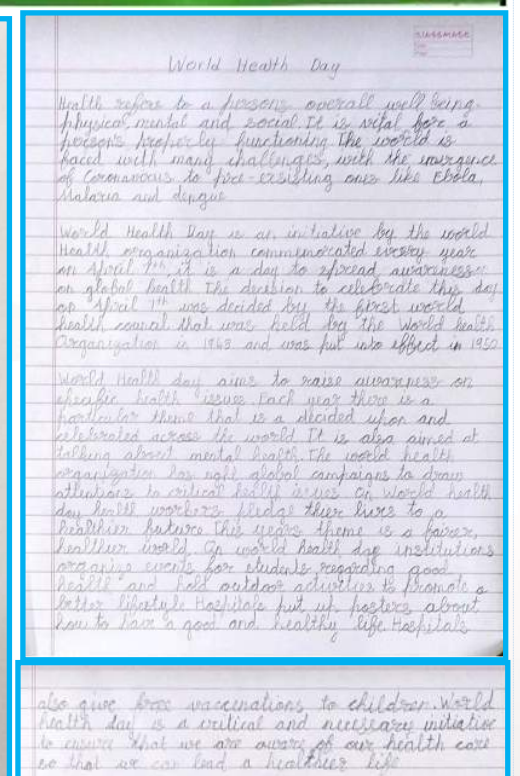 classmate
Date
Page
World Health Day
Health refers to a persons overall well being-
physical, mental and social. It is vital for a
person's properly functioning. The world is
faced with many challenges, with the emurgence
of Coronavirus to pre-exsisting ones like Ebola,
Malaria and dengue
World Health Day is an initiative by the world
Health organization commemorated every year
on April 7th, it is a day to spread awareness
on global health. The decision to celebrate this day
on April 7th was decided by the first world
health council that was held by the World health
Organization in 1948 and was put into effect in 1950
World Health day aims to raise awareness on
specific health issues. Each year there is a
particular theme that is a decided upon and
celebrated across the world. It is also aimed at
talking about mental health. The world health
organization has global campaigns to draw
attentions to critical health issues. On World health
day health workers pledge thier lives to a
healthier future. This years theme is a fairer,
healthier world. On world health day institutions
organize events for students regarding good
health and hold outdoor activities to promote a
better lifestyle. Hospitals put up posters about
how to have a good and healthy life. Hospitals
also give free vaccinations to children. World
health day is a critical and necessary initiative
to ensure that we are aware of our health care
so that we can lead a healthier life